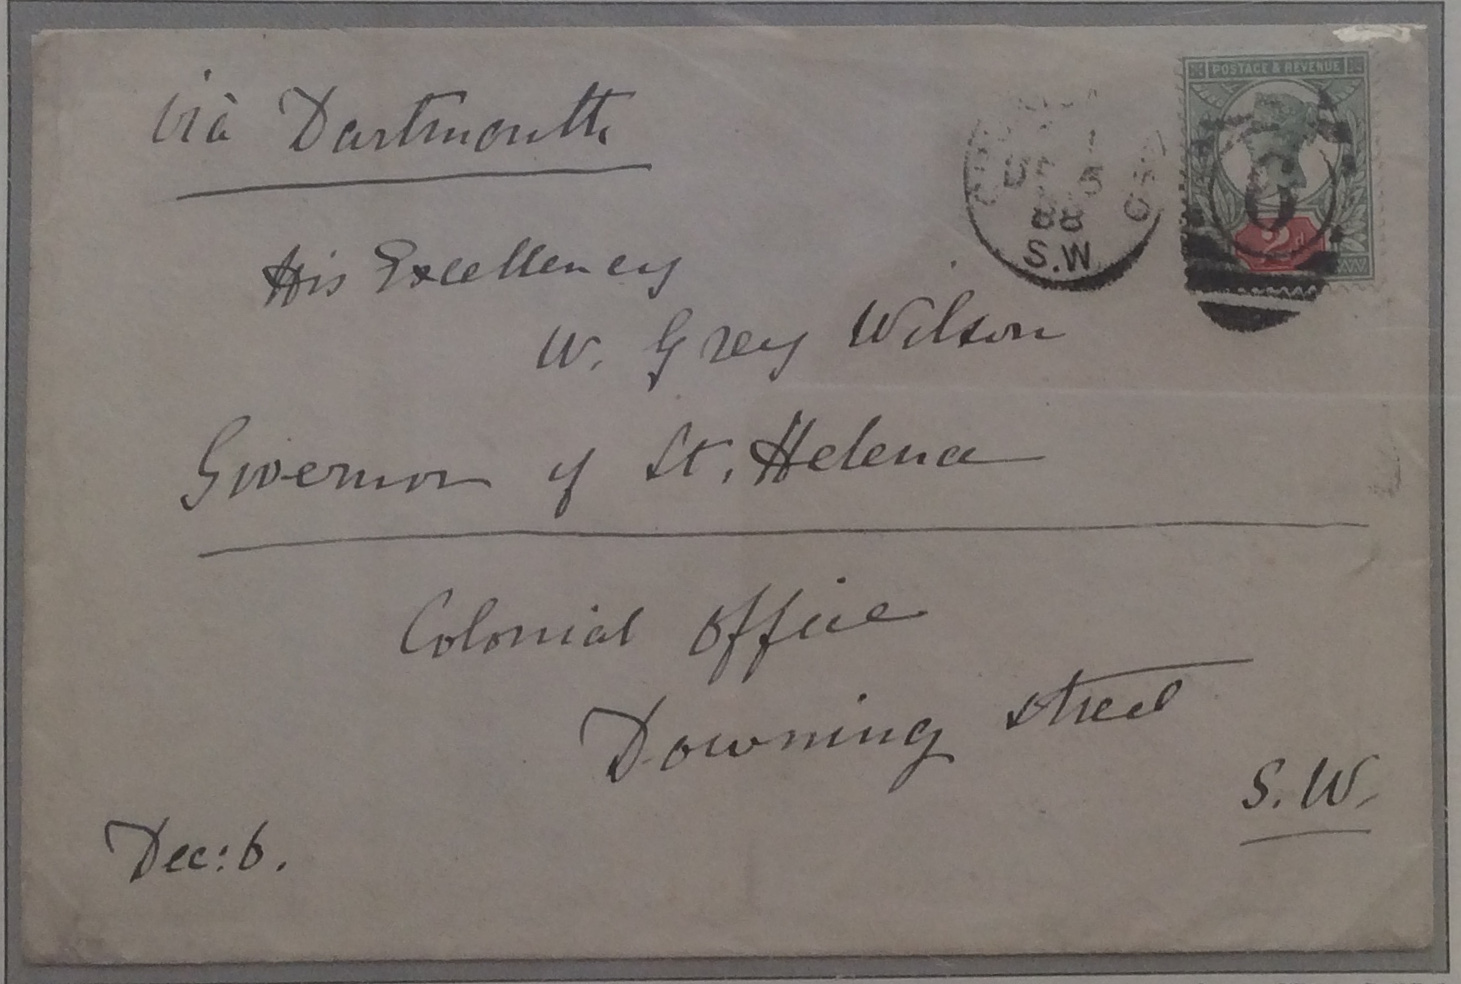 via Dartmouth
POSTAGE & REVENUE
88
S.W
6
2d
His Excellency
W. Grey Wilson
Governor of St. Helena
Colonial Office
Downing Street
S.W.
Dec: 6.